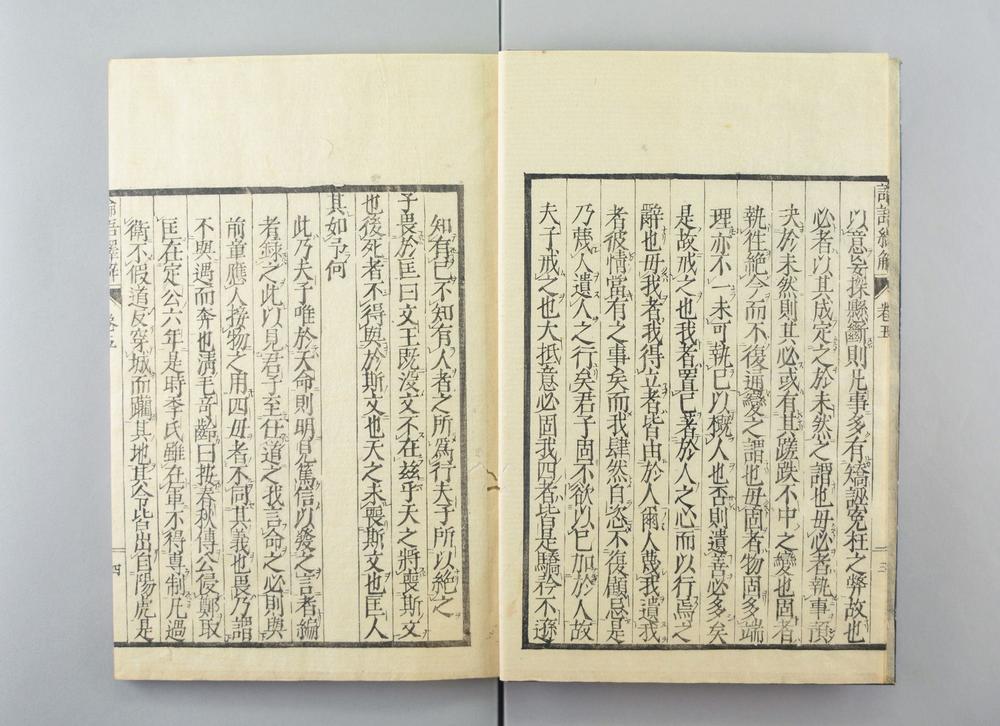 以意妄探懸斷則凡事多有矯誣冤枉之弊故也
必者以其成定之於未然之謂也毋必者執事預
夬於未然則其必或有其蹉跌不中之變也固者
執徃絶今而不復通變之謂也毋固者物固多端
理亦不一未可執已以概人也否則遺善必多矣
是故戒之也我者置己著於人之心而以行焉之
辭也毋我者我得立者皆由於人爾人蔑我遺我
者彼情當有之事矣而我肆然自恣不復顧忌是
乃蔑人遺人之行矣君子固不欲以己加於人故
夫子戒之也大抵意必固我四者皆是驕矜不遜
卷五
三
知有己不知有人者之所爲行夫子所以絶之
子畏於匡曰文王既没文不在茲乎天之將喪斯文
也後死者不得與於斯文也天之未喪斯文也匡人
其如予何
此乃夫子唯於天命則明見篤信以發之言者編
者録之此以見君子至仕道之我言命之必則與
前章應人接物之用四毋者不同其義也畏乃謂
不與遇而奔也清毛奇齡曰按春秋傳公侵鄭取
匡在定公六年是時季氏雖在軍不得專制凡過
衛不假道反穿城而躪其地其令皆出自陽虎是
四